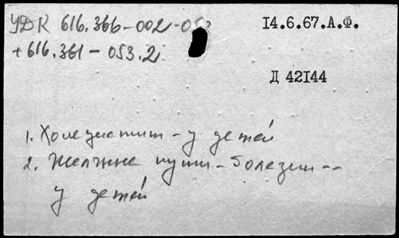 УДК 616.366-002-053
+616.361-053.2
14.6.67.А.Ф.
Д 42144
1. Холецистит - у детей
2. Желчные пути - болезни --
у детей